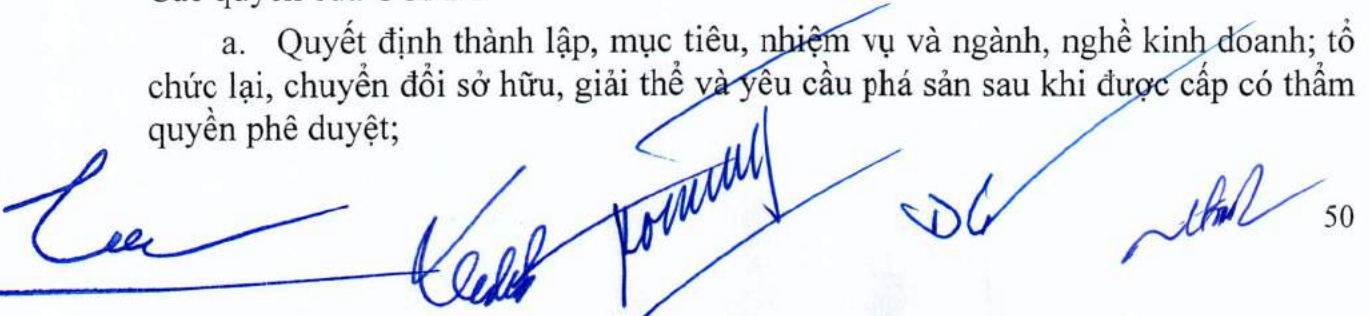 a. Quyết định thành lập, mục tiêu, nhiệm vụ và ngành, nghề kinh doanh; tổ
chức lại, chuyển đổi sở hữu, giải thể và yêu cầu phá sản sau khi được cấp có thẩm
quyền phê duyệt;
50